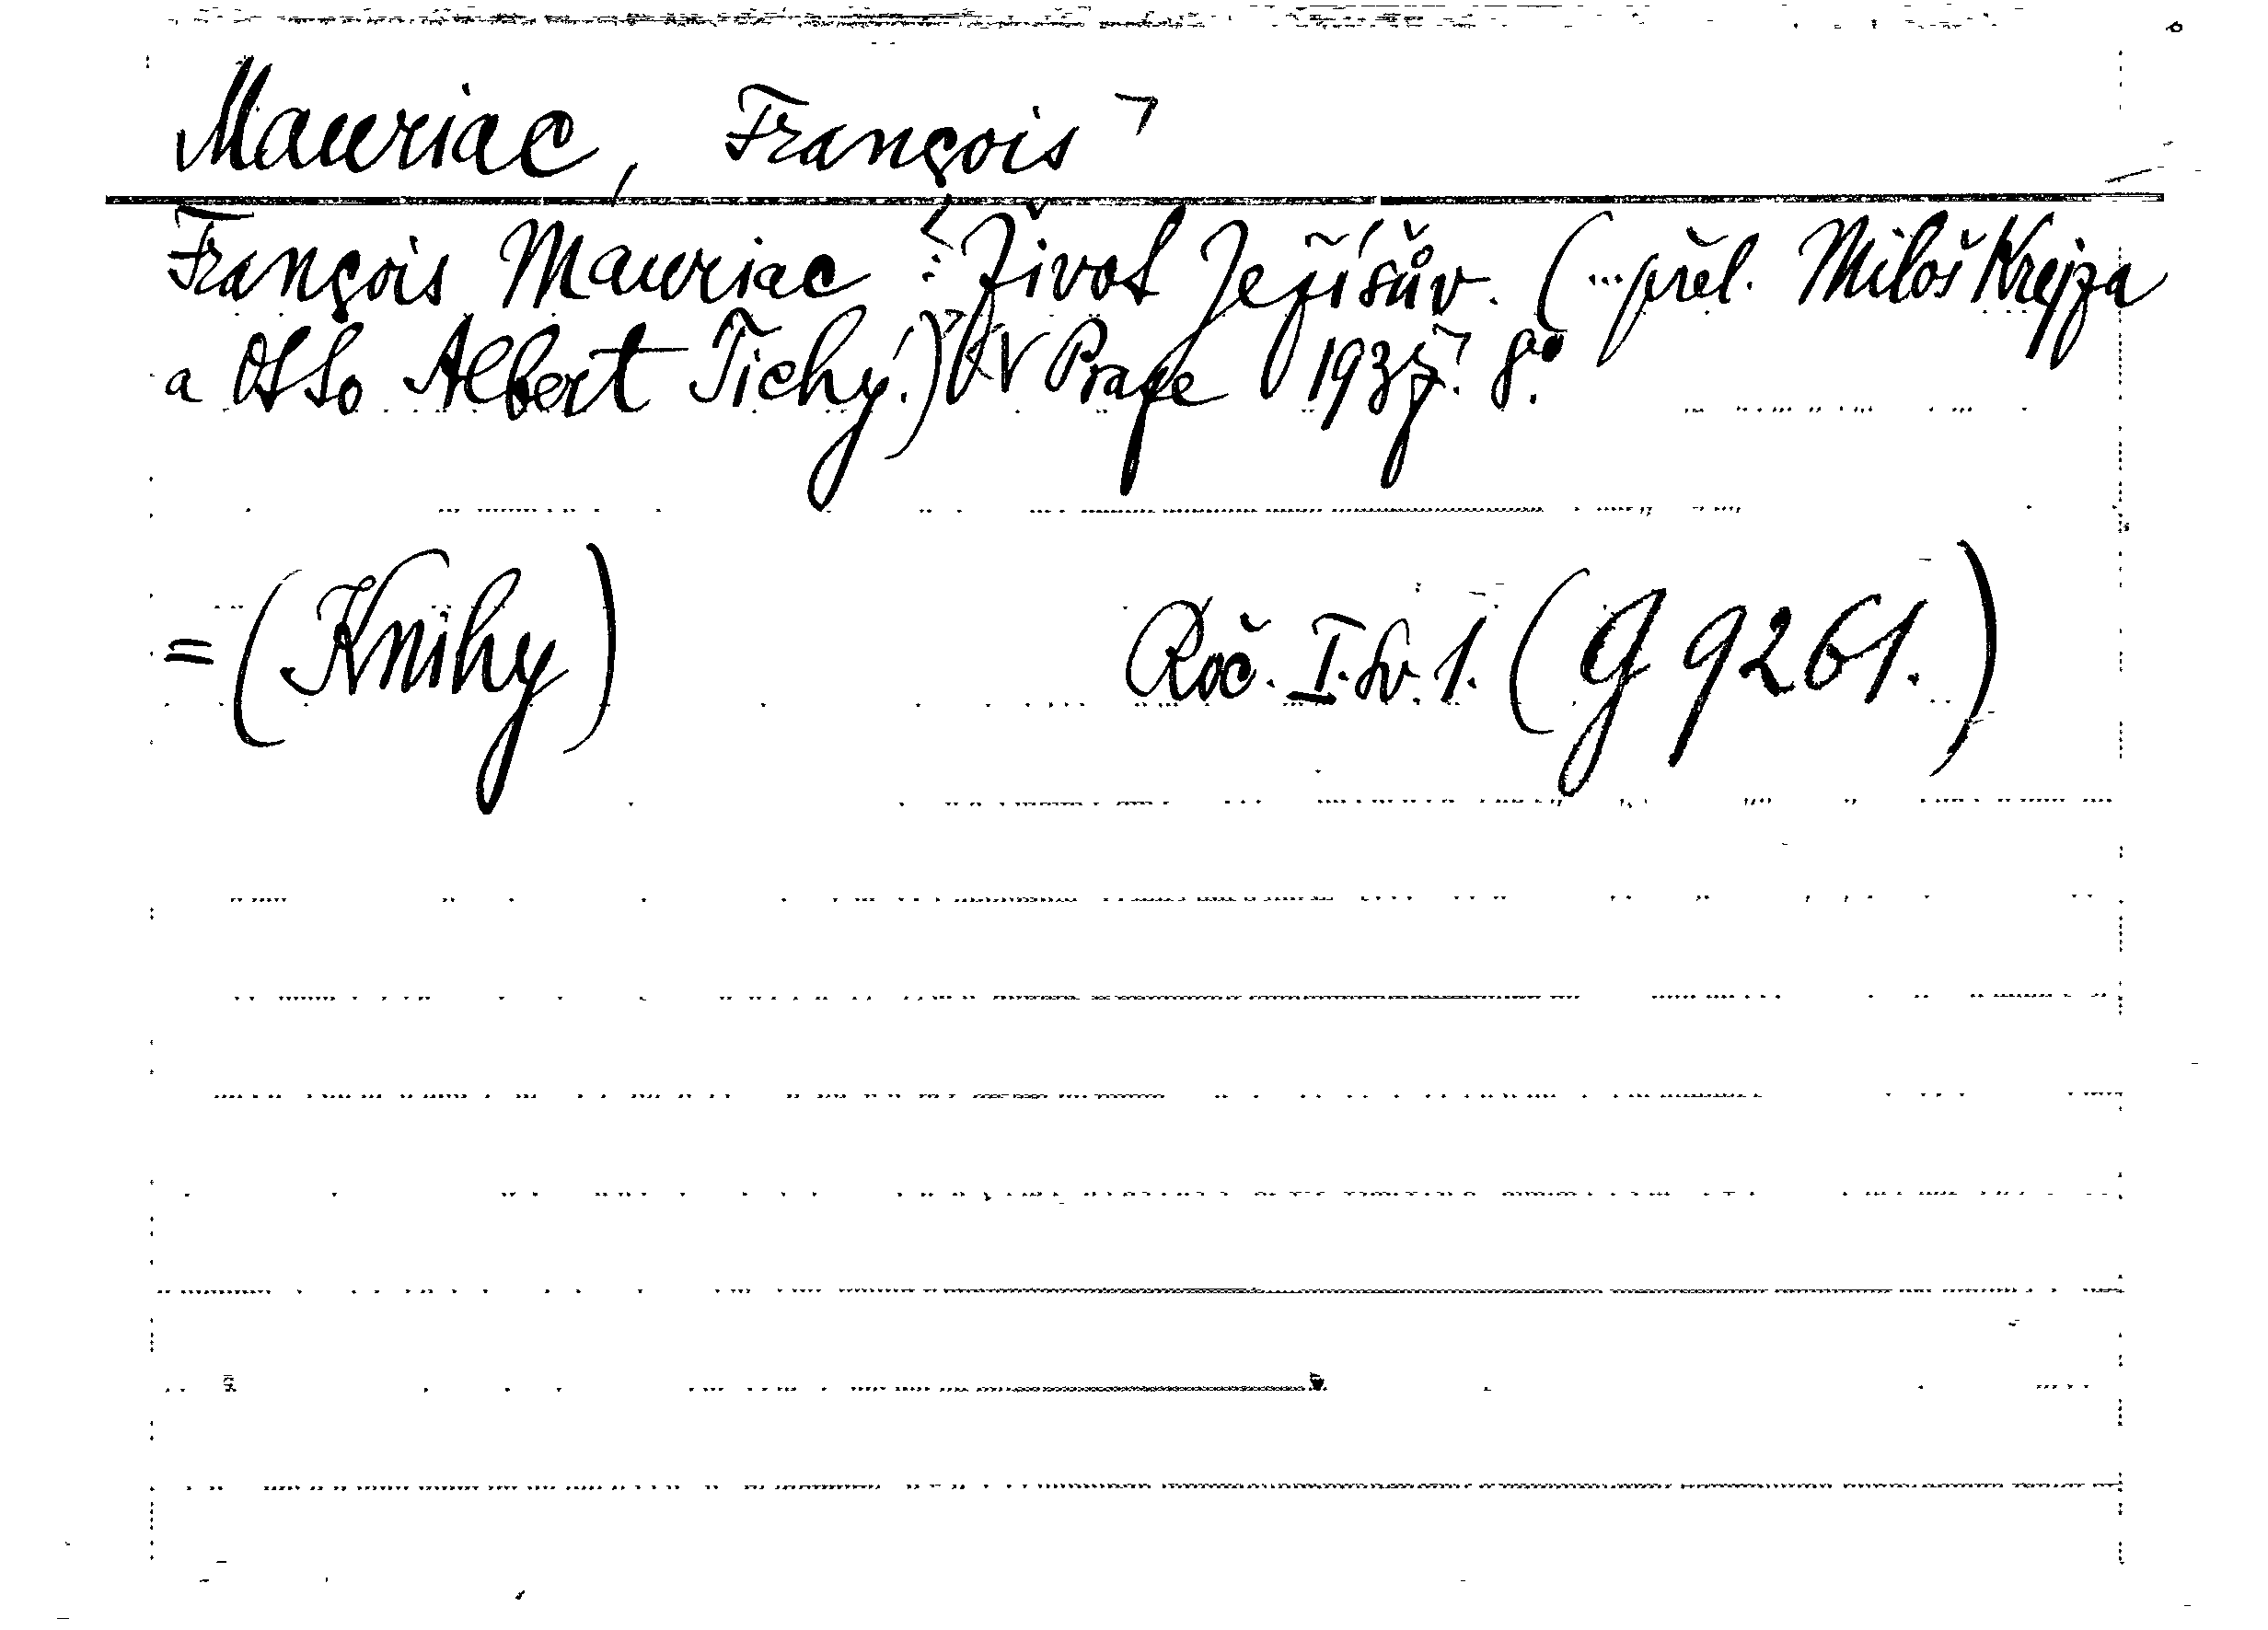 Mauriac, François
François Mauriac: Život Ježíšův. (...přel. Miloš Krejza
a Otto Albert Tichý.) V Praze 1937. 8°
=(Knihy) Roč. I. sv. 1. (G 9261.)